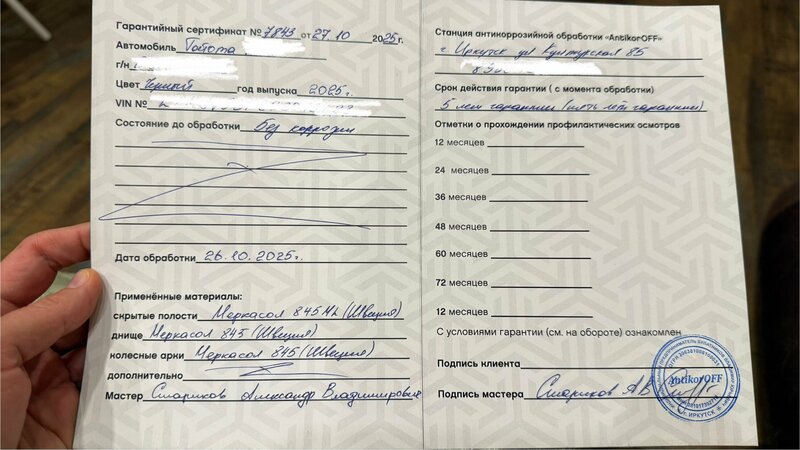 Гарантийный сертификат № 7843 от 27.10 2025г.
Автомобиль Тойота
г/н
Цвет Черный год выпуска 2025г.
VIN №
Состояние до обработки Без коррозии
Дата обработки 26.10.2025г.
Применённые материалы:
скрытые полости Меркасол 845 ML (Швеция)
днище Меркасол 845 (Швеция)
колесные арки Меркасол 845 (Швеция)
дополнительно
Мастер Стариков Александр Владимирович
Станция антикоррозийной обработки «AntikorOFF»
г. Иркутск ул Култукская 85
Срок действия гарантии ( с момента обработки)
5 лет гарантии (пять лет гарантии)
Отметки о прохождении профилактических осмотров
12 месяцев
24 месяцев
36 месяцев
48 месяцев
60 месяцев
72 месяцев
12 месяцев
С условиями гарантии (см. на обороте) ознакомлен
Подпись клиента
Подпись мастера Стариков АВ
AntikorOFF
г. ИРКУТСК